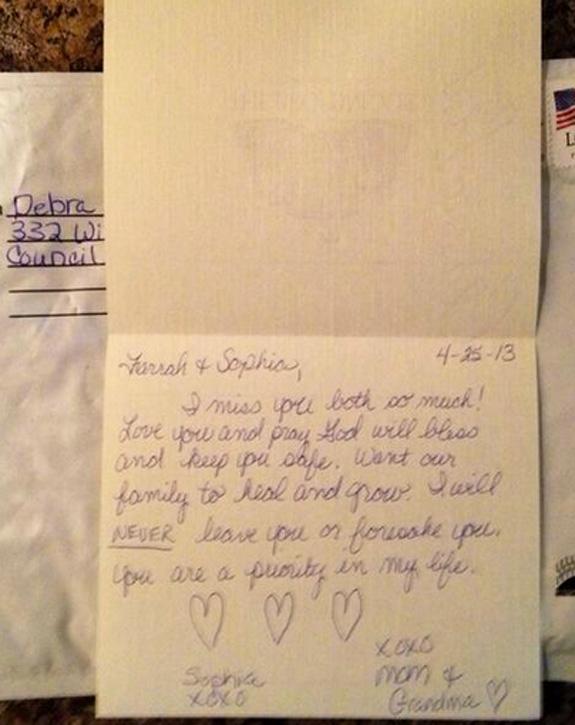 Debra
332 Wi
Council
L
Farrah & Sophia,
4-25-13
I miss you both so much!
Love you and pray God will bless
and keep you safe. Want our
family to heal and grow. I will
NEVER leave you or foresake you.
You are a priority in my life.
Sophia
xoxo
xoxo
mom &
Grandma